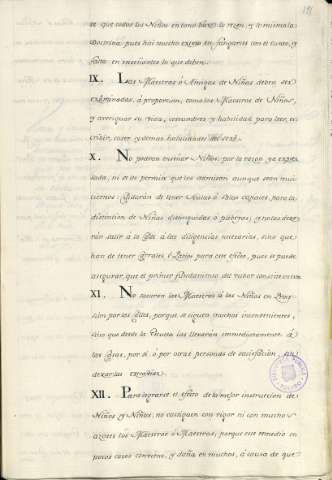 de que todos los Niños en tono
Doctrina pues hai mucho exceso en fatigarlos con el canto, y
falta en enseñarles lo que deben.
IX. Las Maestras ó Amigas de Niñas deben ser
examinadas, á proporcion, como los Maestros de Niños,
y averiguar su vida, costumbres y habilidad para leer, es-
cribir, coser y demas habilidades del sexô.
X. No podran enseñar Niños por la razon ya expre-
sada, ni se les permita que los admitan aunque sean mui
tiernos: Cuidarán de tener Aulas ó Salas capaces para la
distincion de Niñas distinguidas ó pobres; y estas no de-
rán salir á la Calle á las diligencias necesarias, sino que
han de tener Corrales ó Patios para este efecto, pues se puede
asegurar, que el primer fundamento del rubor consiste en esto.
XI. No sacarán las Maestras á las Niñas en Pro-
sion por las Calles, porque se siguen muchos inconvenientes,
sino que desde la Escuela las llevarán immediatamente á
las Casas, por sí, ó por otras personas de satisfaccion, sin
dexarlas extraviar.
XII. Para lograr el efecto de la mejor instruccion de
Niños y Niñas, no castiguen con rigor ni con muchos
azotes los Maestros ó Maestras, porque este remedio en
pocos casos conviene, y daña en muchos, á causa de que